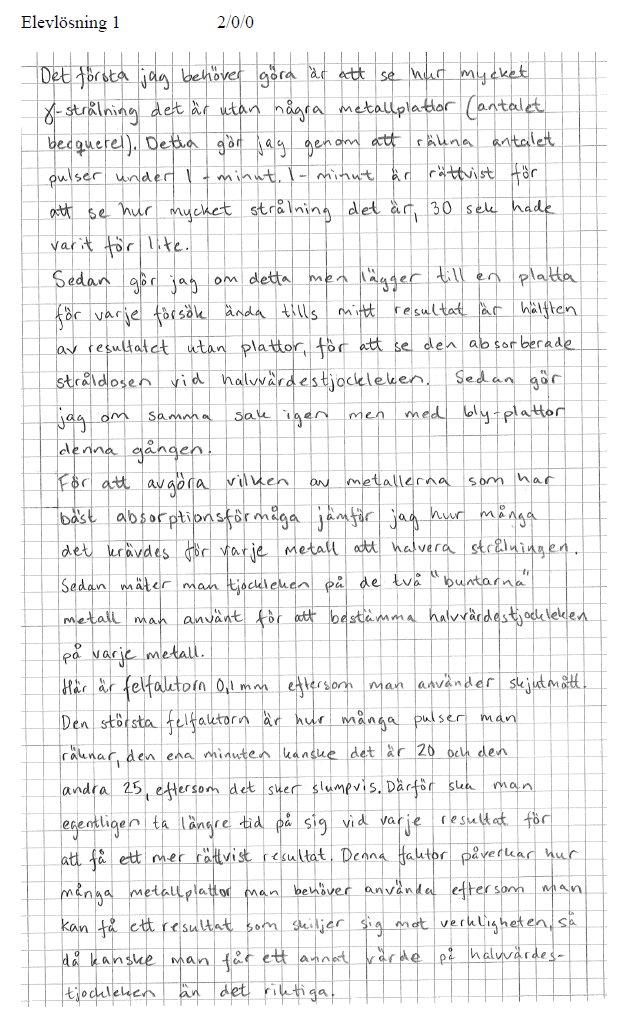 Elevlösning 1 2/0/0
Det första jag behöver göra är att se hur mycket
γ-strålning det är utan några metallplattor (antalet
becquerel). Detta gör jag genom att räkna antalet
pulser under 1-minut. 1-minut är rättvist för
att se hur mycket strålning det är, 30 sek hade
varit för lite.
Sedan gör jag om detta men lägger till en platta
för varje försök ända tills mitt resultat är hälften
av resultatet utan plattor, för att se den absorberade
stråldosen vid halvvärdestjockleken. Sedan gör
jag om samma sak igen men med bly-plattor
denna gången.
För att avgöra vilken av metallerna som har
bäst absorptionsförmåga jämför jag hur många
det krävdes för varje metall att halvera strålningen.
Sedan mäter man tjockleken på de två "buntarna"
metall man använt för att bestämma halvvärdestjockleken
på varje metall.
Här är felfaktorn 0,1 mm eftersom man använder skjutmått.
Den största felfaktorn är hur många pulser man
räknar, den ena minuten kanske det är 20 och den
andra 25, eftersom det sker slumpvis. Därför ska man
egentligen ta längre tid på sig vid varje resultat för
att få ett mer rättvist resultat. Denna faktor påverkar hur
många metallplattor man behöver använda eftersom man
kan få ett resultat som skiljer sig mot verkligheten, så
då kanske man får ett annat värde på halvvärdes-
tjockleken än det riktiga.